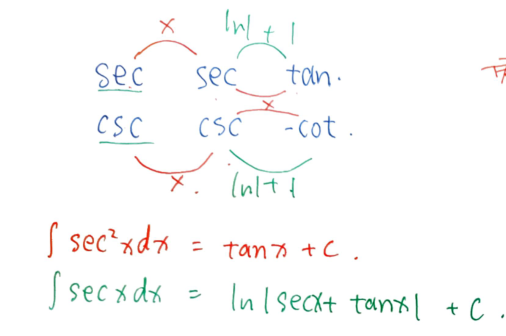 × ln|+|
sec sec tan.
×
csc csc -cot.
×. ln|+|
∫ sec²x dx = tanx + c.
∫ secx dx = ln|secx + tanx| + c.